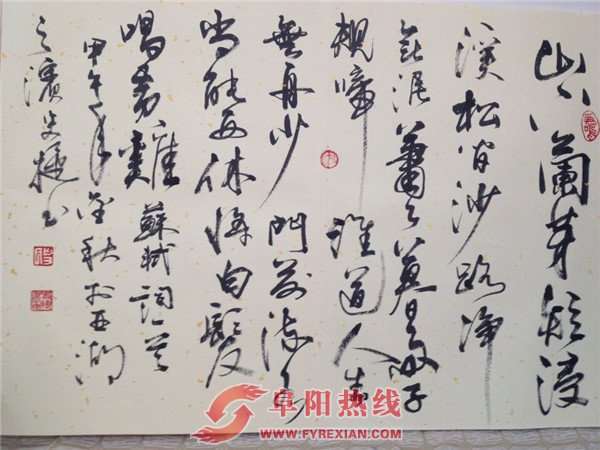 山下蘭芽短浸
溪松间沙路净
無泥蕭蕭暮雨子
規啼 誰道人生
無再少 門前流水
尚能西休將白髮
唱黄雞 蘇軾詞一首
甲午年秋於西湖
之濱史书
阜阳热线
WWW.FYREXIAN.COM